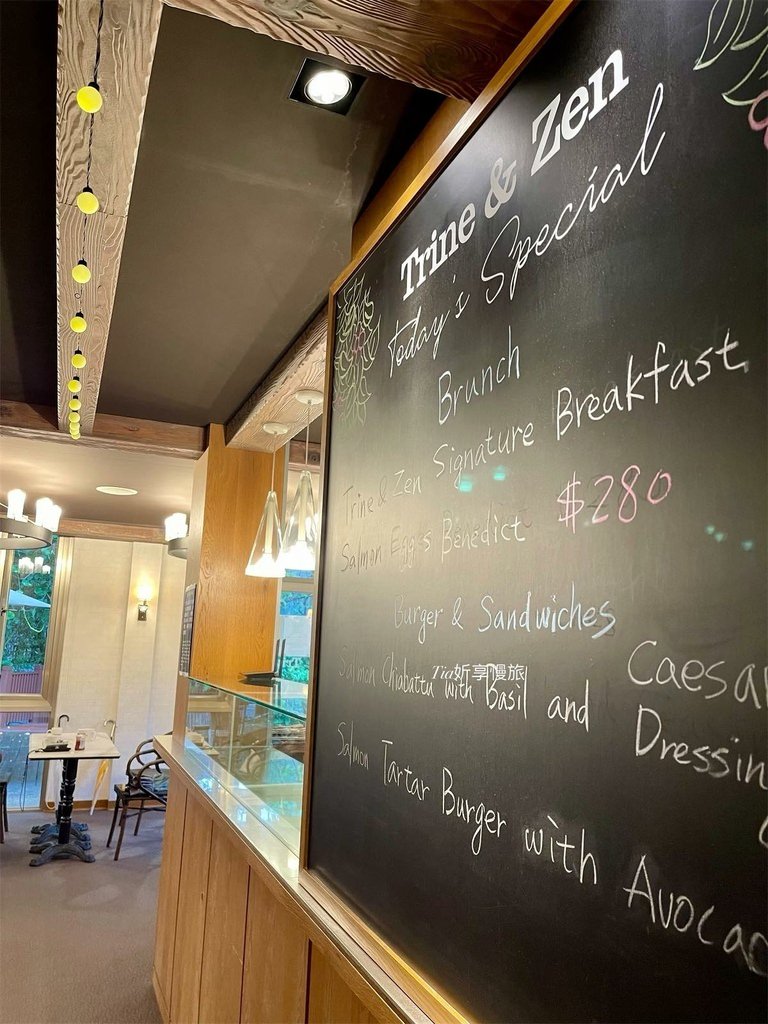 Trine & Zen
Today's Special
Brunch
Trine & Zen Signature Breakfast
Salmon Eggs Benedict $280
Burger & Sandwiches
Salmon Chiabatta with Basil and Caesar
Dressing
Salmon Tartar Burger with Avocad
Tia妡享慢旅